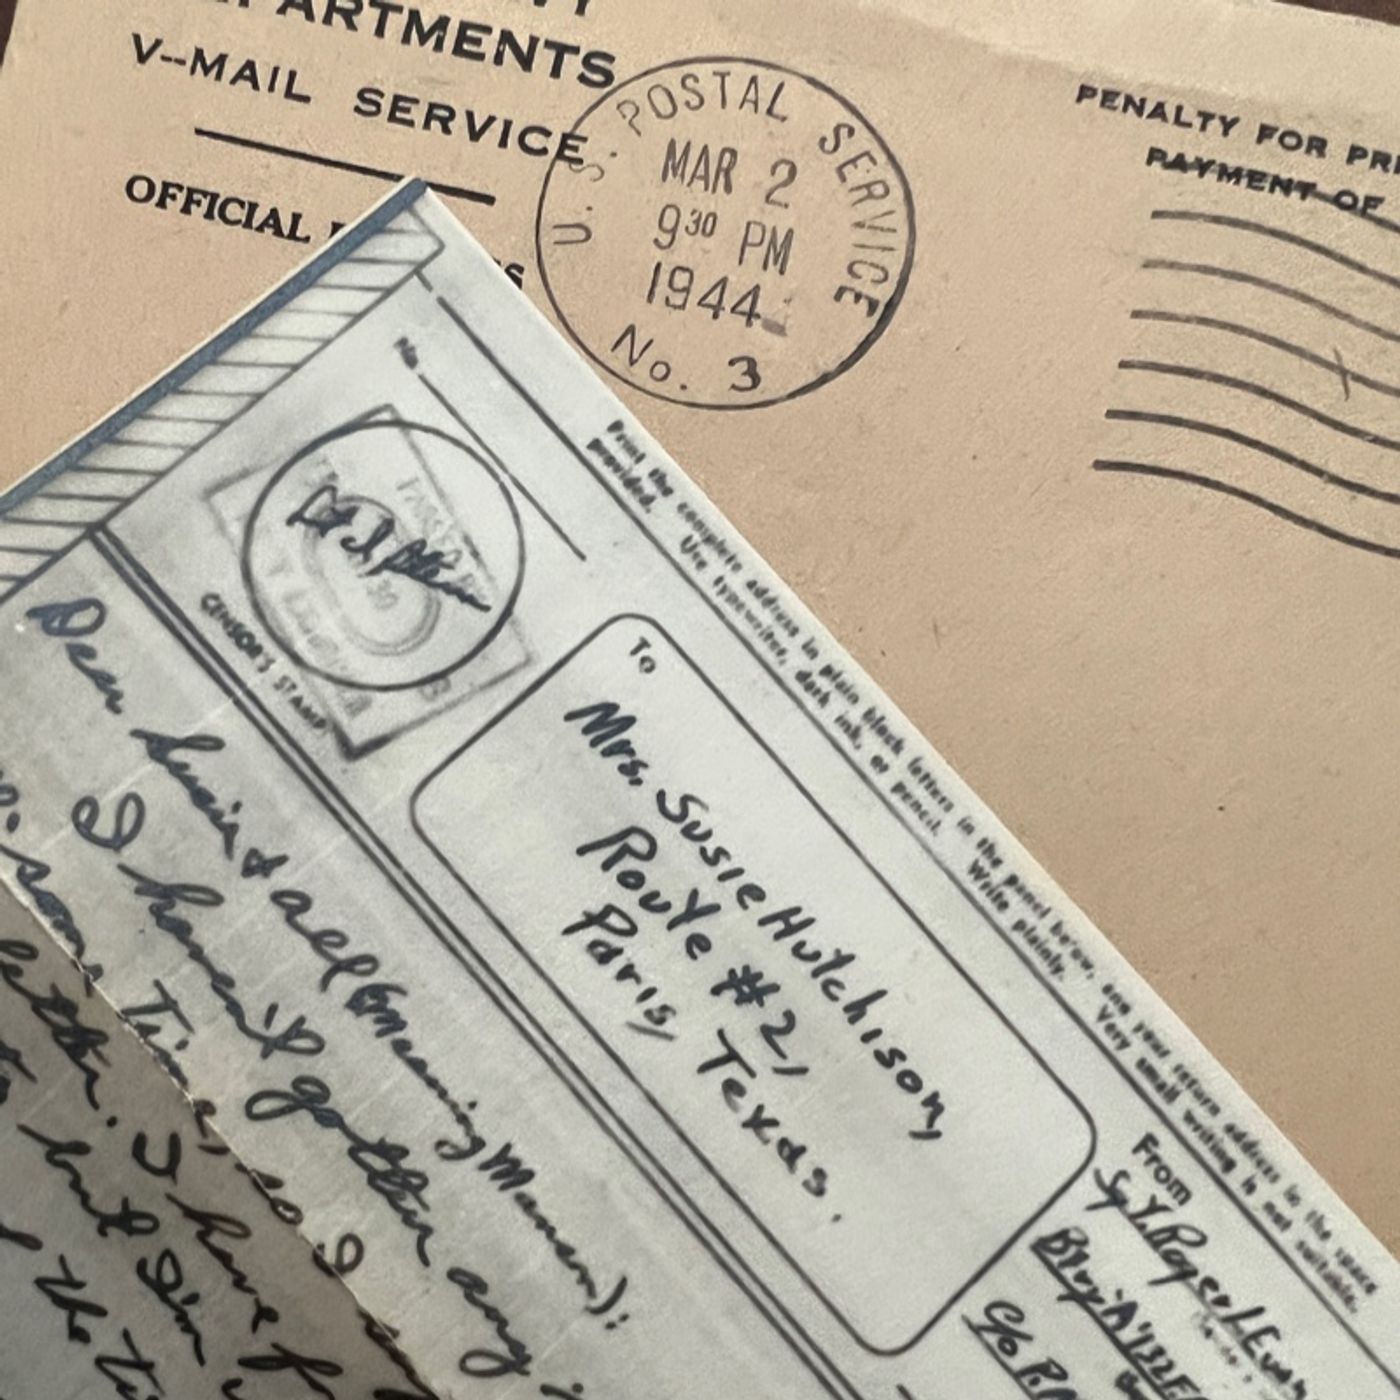 DEPARTMENTS
V--MAIL SERVICE
OFFICIAL
U.S. POSTAL SERVICE
MAR 2
9 30 PM
1944
No. 3
PENALTY FOR
PAYMENT OF
No.
CENSOR'S STAMP
Print the complete address in plain block letters in the panel below, and your return address in the space
provided. Use typewriter, dark ink, or pencil. Write plainly. Very small writing is not suitable.
To
Mrs. Susie Hutchison,
Route #2,
Paris, Texas.
From
Sgt. Roger L. Evans
Btry "A" 132
c/o P.
Dear Susie & all (meaning Manson):
I haven't gotten any
some time, so I
letter. I have
but I'm
the